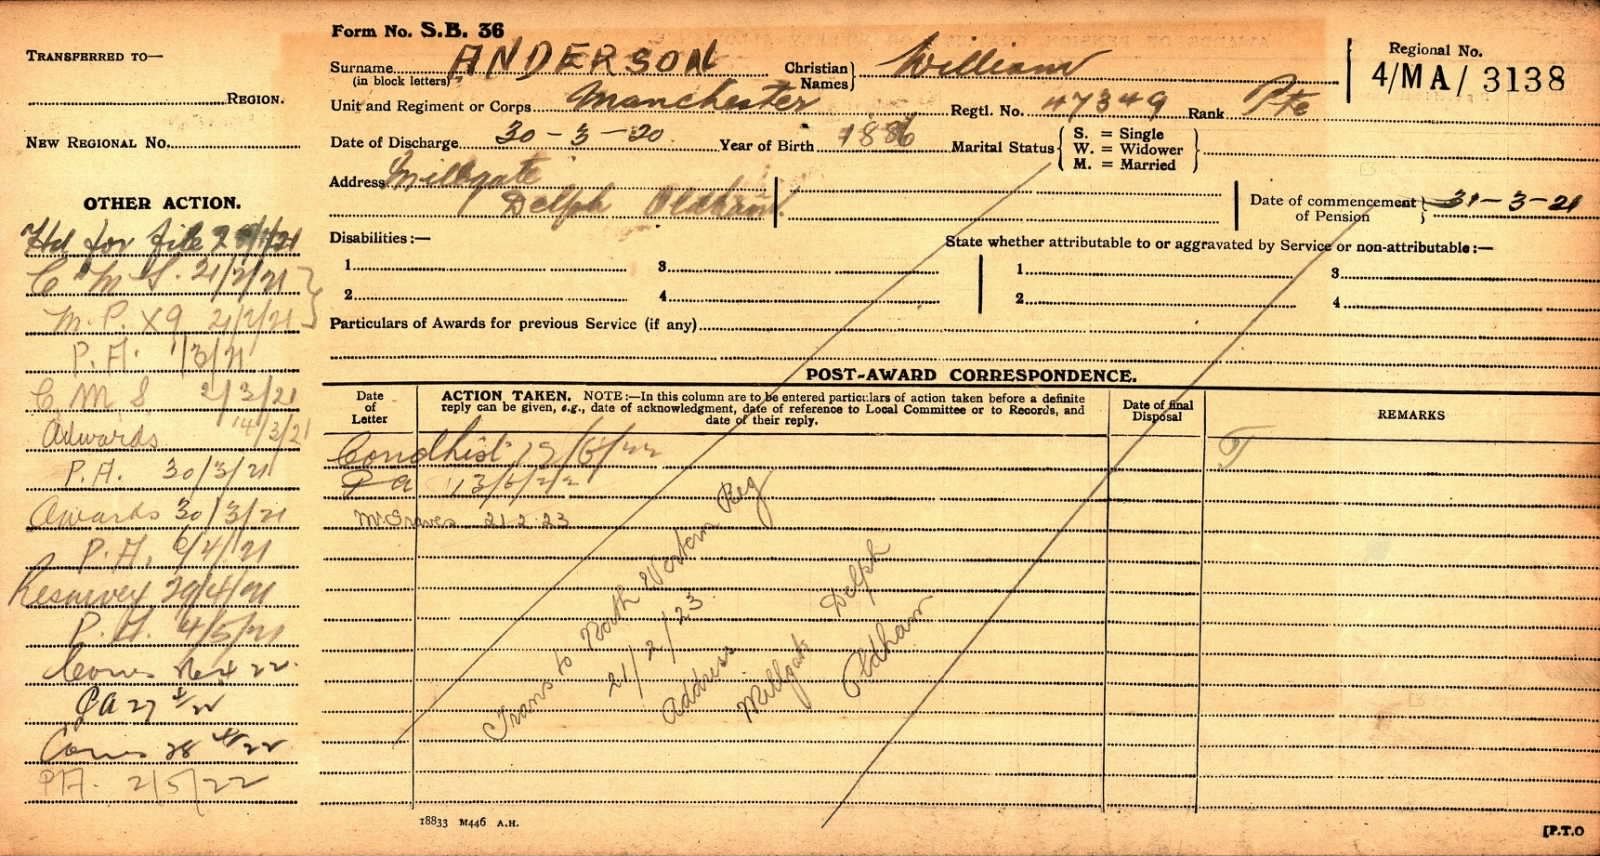 Form No. S.B. 36
TRANSFERRED TO—
REGION.
NEW REGIONAL No.
OTHER ACTION.
Hd for file 2 /1/21
C M S. 21/2/21
M.P. X9 2/2/21
P.A. 1/3/21
C M S 2/3/21
Awards 14/3/21
P.A. 30/3/21
Awards 30/3/21
P.A. 6/4/21
29/4/21
P.A. 4/5/21
22
PA 27 4/22
28 4/22
PA. 2/5/22
Surname ANDERSON Christian Names William
(in block letters)
Regional No.
4/MA/ 3138
Unit and Regiment or Corps Manchester Regtl. No. 47349 Rank Pte
Date of Discharge 30-3-20. Year of Birth 1886 Marital Status { S. = Single
W. = Widower
M. = Married }
Address Millgate
Delph Oldham.
Date of commencement of Pension } 31-3-21
Disabilities:—
State whether attributable to or aggravated by Service or non-attributable:—
1 3 1 3
2 4 2 4
Particulars of Awards for previous Service (if any)
POST-AWARD CORRESPONDENCE.
Date of Letter
ACTION TAKEN. NOTE:—In this column are to be entered particulars of action taken before a definite
reply can be given, e.g., date of acknowledgment, date of reference to Local Committee or to Records, and
date of their reply.
Date of final Disposal
REMARKS
Condhist 12/6/22
P a 13/6/22
Mr Graves 21.2.23
Trans to North Western Reg
21/2/23.
Address
Millgate Delph
Oldham
18833 M446 A.H.
[P.T.O